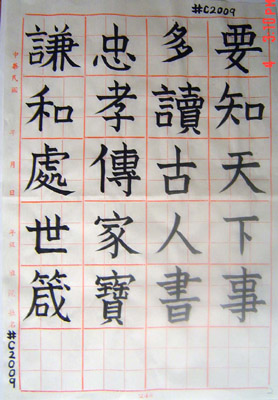 #C2009
要知天下事
多讀古人書
忠孝傳家寶
謙和處世箴
中華民國
月
日
#C2009